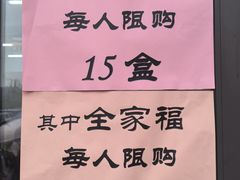 每人限购
15盒
其中全家福
每人限购